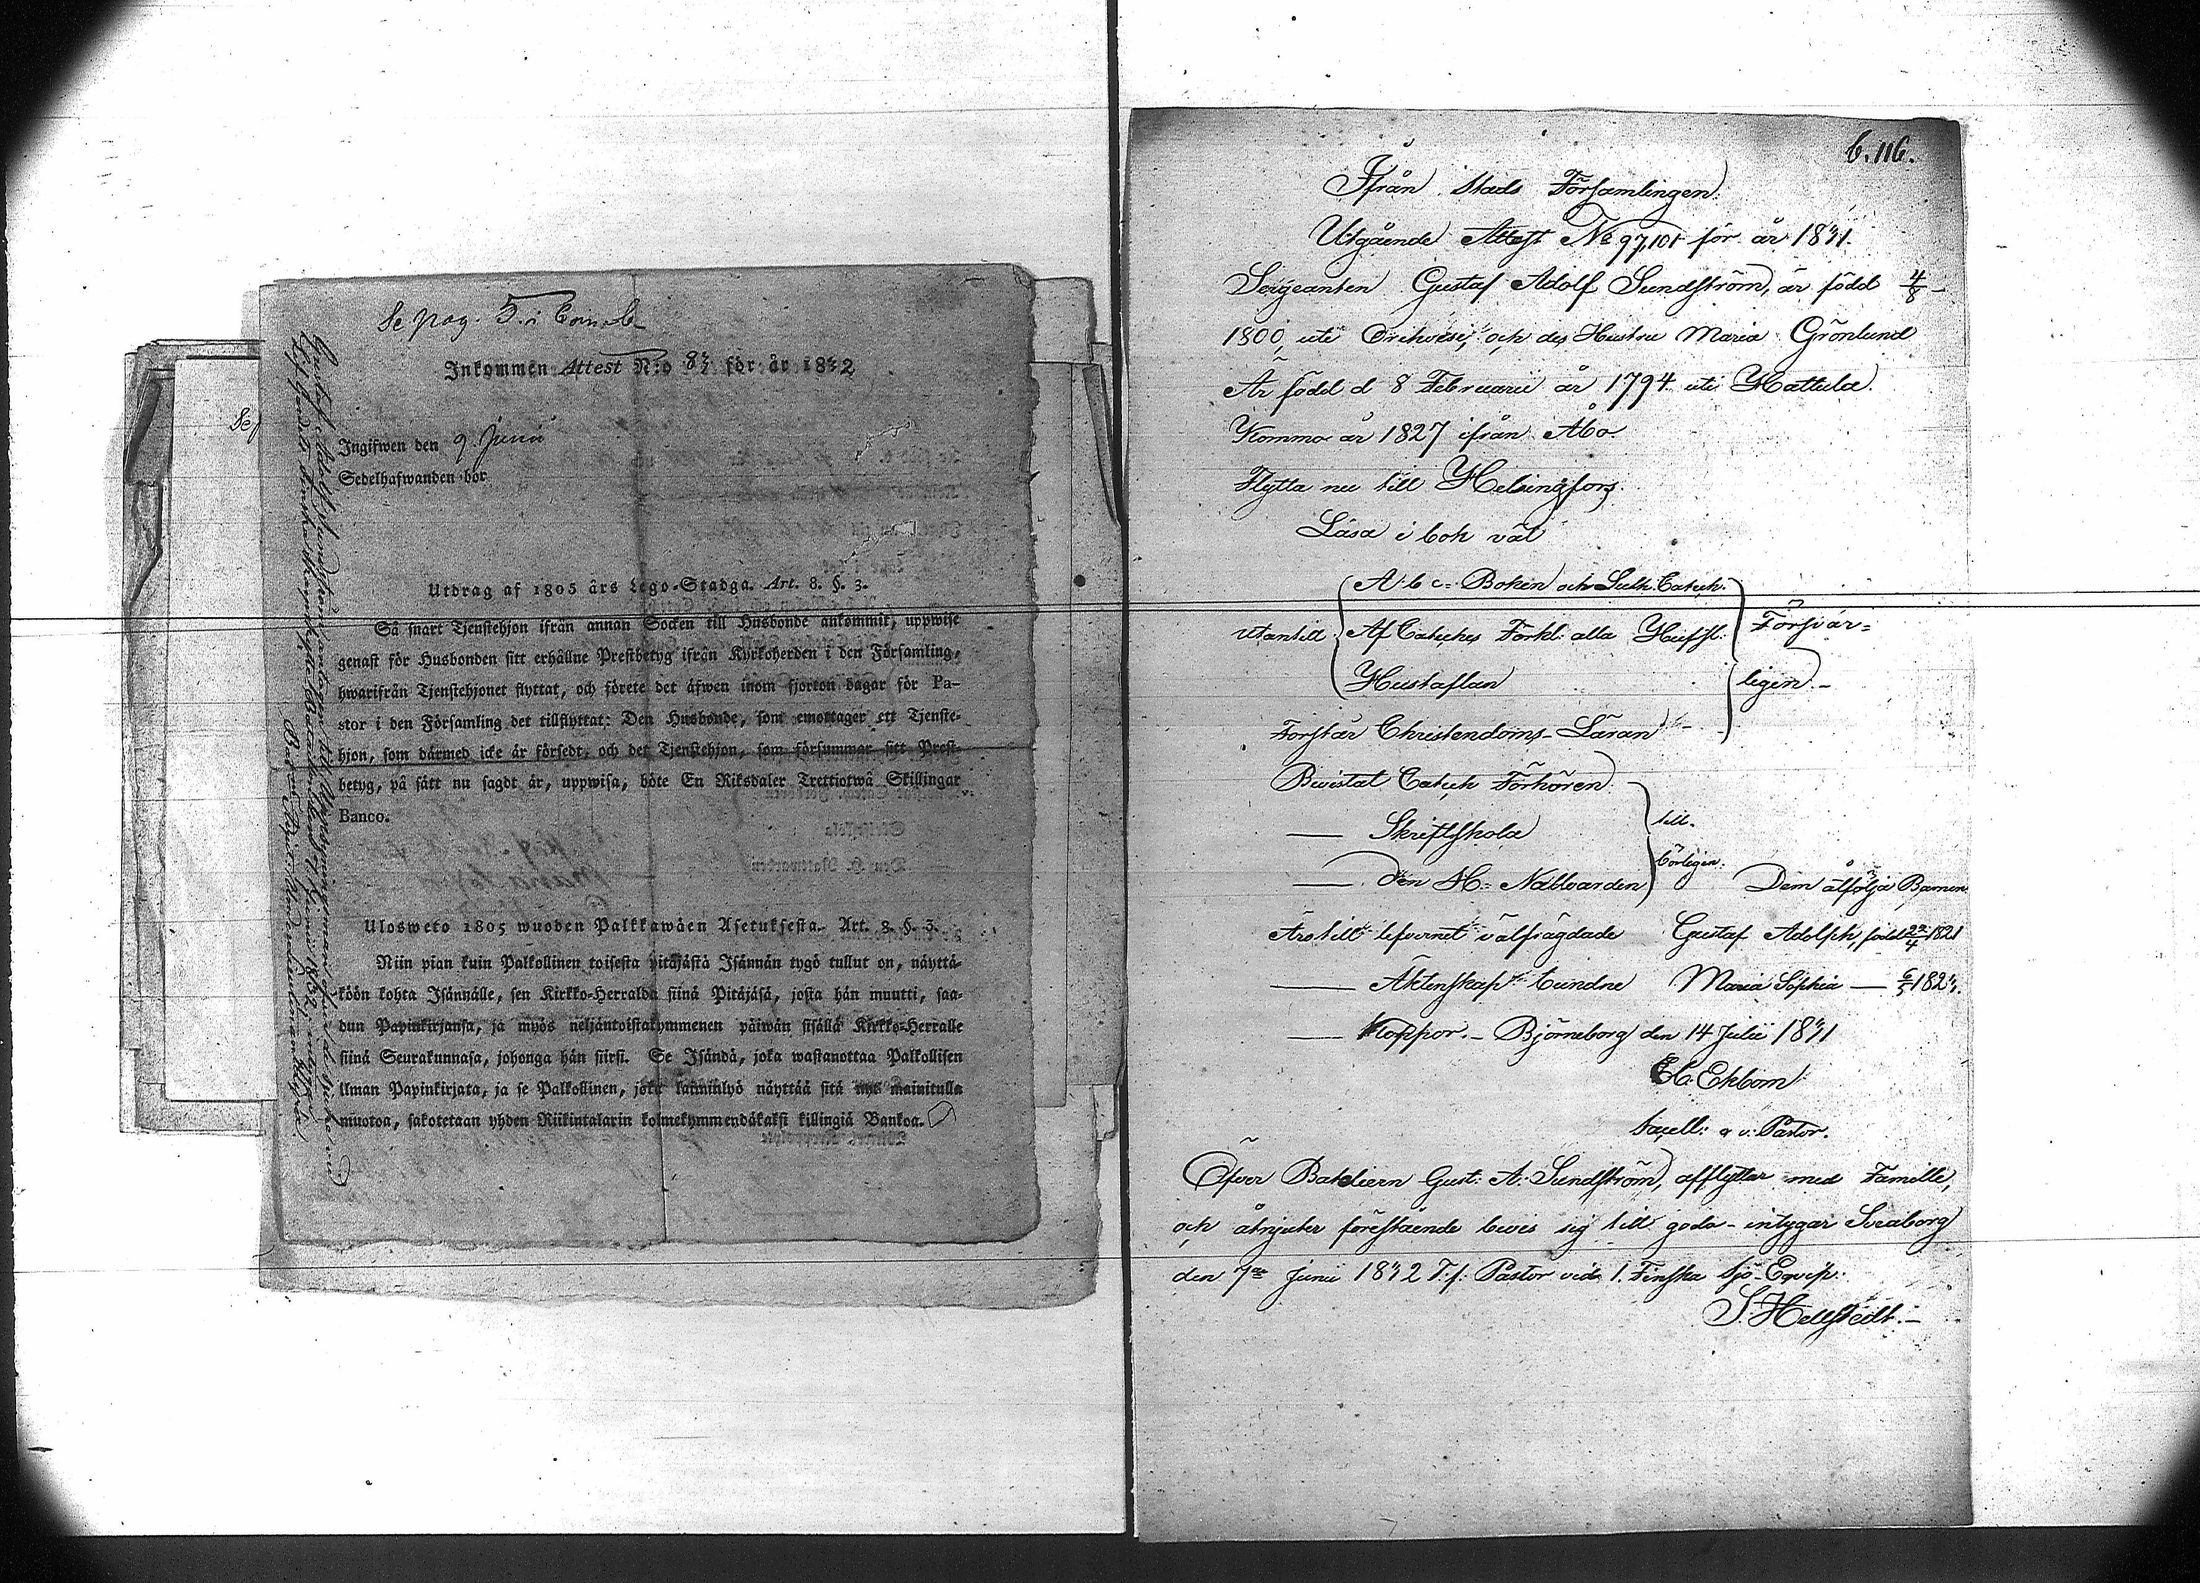 Se pag. 5. i
Inkommen Attest N:o 83 för år 1832
Ingifwen den 9 Junii
Sedelhafwanden bor
Utdrag af 1805 års Lego-Stadga. Art. 8. §. 3.
Så snart Tjenstehjon ifrån annan Socken till Husbonde ankommit, uppwise
genast för Husbonden sitt erhållne Prestbetyg ifrån Kyrkoherden i den Församling,
hwarifrån Tjenstehjonet flyttat, och förete det äfwen inom fjorton dagar för Pa-
stor i den Församling det tillflyttat: Den Husbonde, som emottager ett Tjenste-
hjon, som därmed icke är försedt, och det Tjenstehjon, som försummar sitt Prest-
betyg, på sätt nu sagdt är, uppwisa, böte En Riksdaler Trettiotwå Skillingar
Banco.
Ulosweto 1805 wuoden Palkkawäen Asetuksesta. Art. 8. §. 3.
Niin pian kuin Palkollinen toisesta pitäjästä Isännän tygö tullut on, näyttä-
köön kohta Isännälle, sen Kirkko-Herralda siinä Pitäjäsä, josta hän muutti, saa-
dun Papinkirjansa, ja myös neljäntoistakymmenen päiwän sisällä Kirkko-Herralle
siinä Seurakunnasa, johonga hän siirsi. Se Isändä, joka wastanottaa Palkollisen
ilman Papinkirjata, ja se Palkollinen, joka laiminlyö näyttää sitä nyt mainitulla
muotoa, sakotetaan yhden Riikintalarin kolmekymmendäkaksi killingiä Bankoa.
Gustaf Adolf Sundström
6. 116.
Ifrån Stads Församlingen.
Utgående Attest No 97,101 för år 1831.
Sergeanten Gustaf Adolf Sundström, är född 4/8
1800, uti Orihvesi, och des Hustru Maria Grönlund
Är född d 8 Februarii år 1794 uti Hattula.
Kommo år 1827 ifrån Åbo.
Flytta nu till Helsingfors.
Läsa i bok väl
A b c= Boken och Luth. Catech.
utantill Af Cateches Förkl. alla Hufst. Försvar=
Hustaflan ligen.
Förstår Christendoms Läran
Bevistat Catech Förhören
Skriftskola till=
Den H= Nattvarden börligen. Dem åtfölja Barnen
Äro till lefvernet välfrägdade Gustaf Adolph, född 22/4 1821
Äktenskap bundne Maria Sophia 6/5 1823.
Koppor. Björneborg den 14 Julii 1831
C. Ekbom
Sacell: o v: Pastor.
Öfver Bateliern Gust: A: Sundström, afflyttar med Famille,
och åtnjuter förestående bevis sig till godo - intygar Sveaborg
den 7de Junii 1832 T.f. Pastor vid 1. Finska Sjö-Equip:
S. Hellstedt.